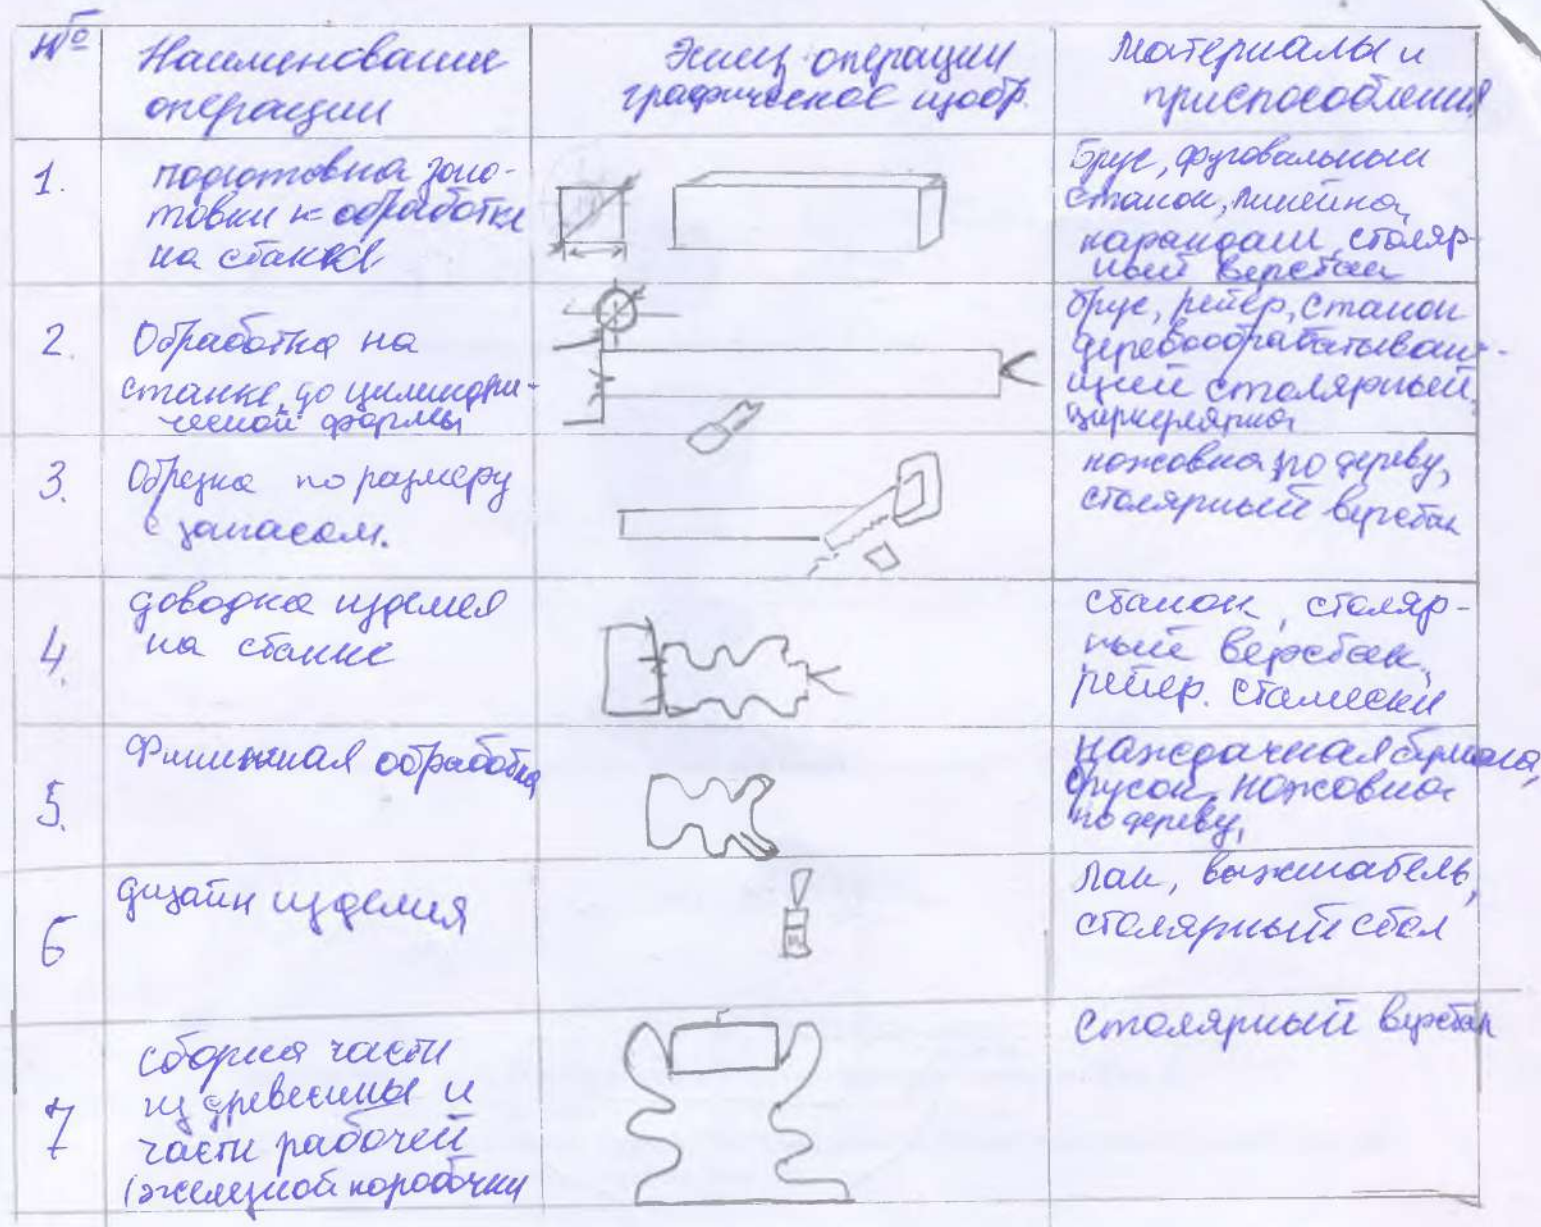 №
Наименование
операции
Эскиз операции
графическое изобр.
Материалы и
приспособления
1.
подготовка заго-
товки к обработке
на станке
Брус, фуговальный
станок, линейка,
карандаш, столяр-
ный верстак
2.
Обработка на
станке до цилиндри-
ческой формы
брус, рейер, станок
деревообрабатываю-
щий столярный,
циркулярка
3.
Обрезка по размеру
с запасом.
ножовка по дереву,
столярный верстак
4.
доводка изделия
на станке
станок, столяр-
ный верстак,
рейер. стамески
5.
Финишная обработка
наждачная бумага,
брусок, ножовка
по дереву,
6
дизайн изделия
лак, выжигатель,
столярный стол
7
сборка части
из древесины и
части рабочей
(железной коробочки
столярный верстак